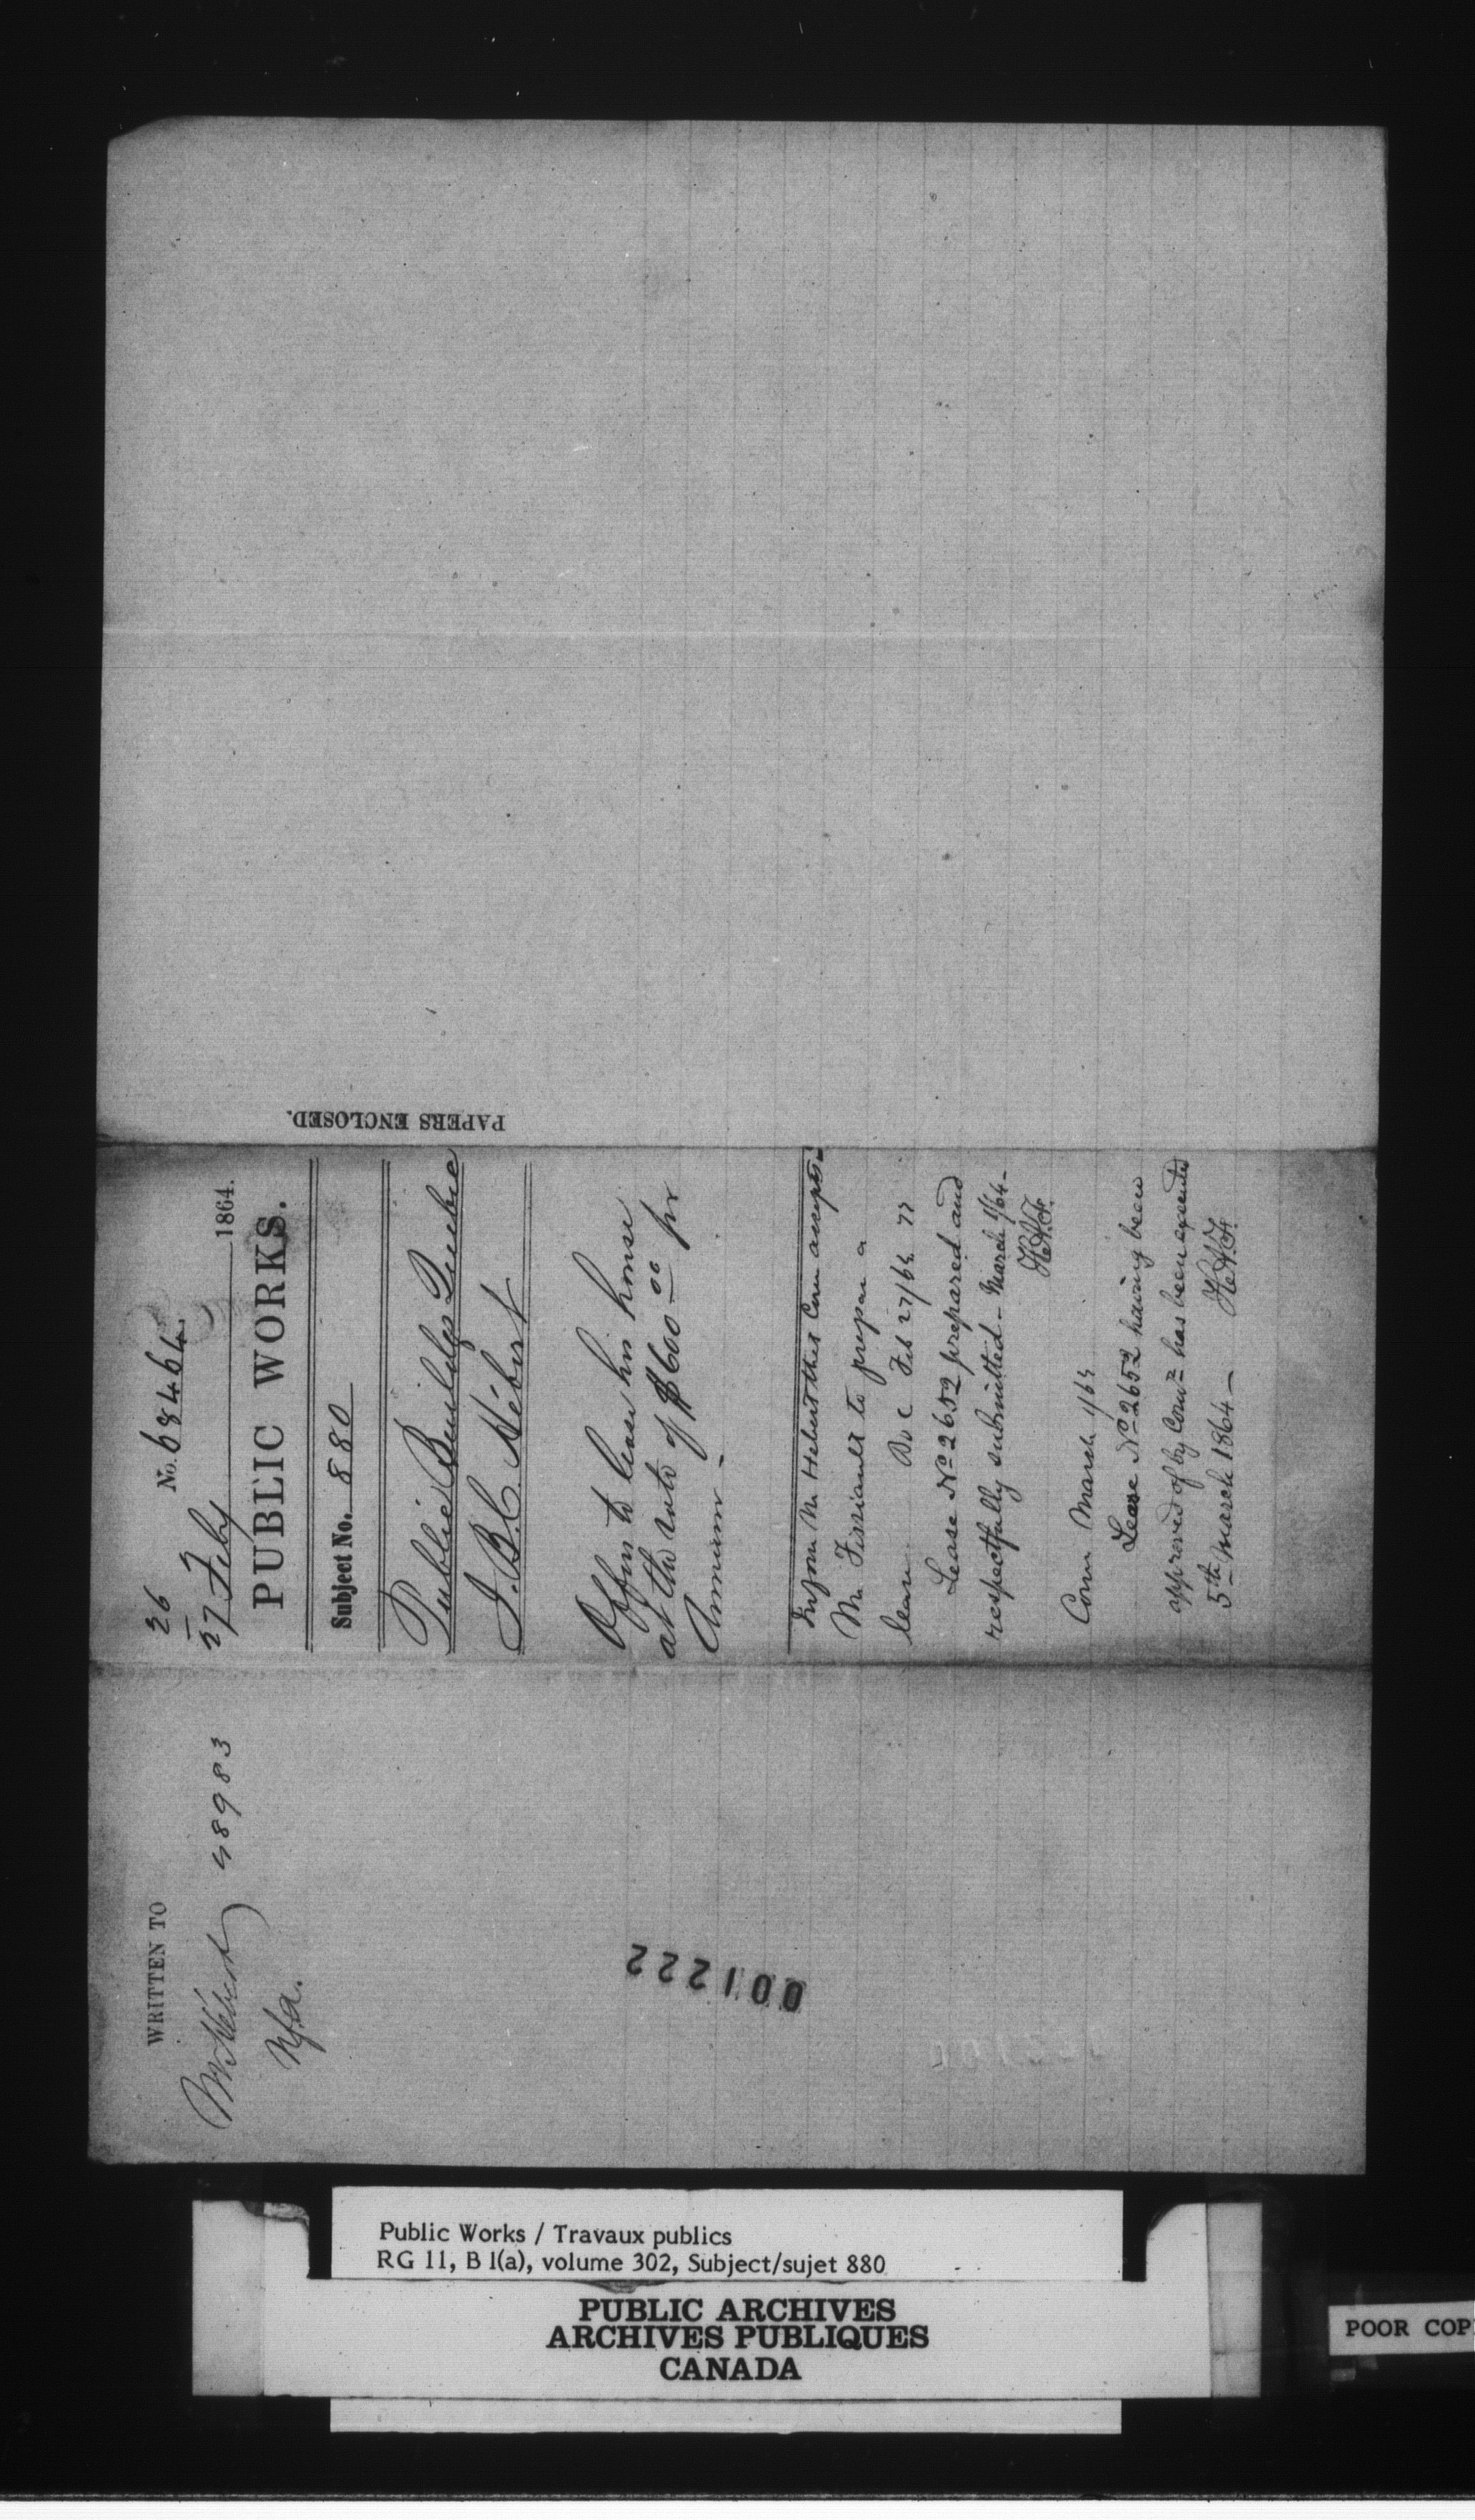 WRITTEN TO
Mr Hébert 48983
Nfa.
001222
26
27 Feby 1864.
No. 68464
PUBLIC WORKS.
Subject No. 880
Public Buildgs Quebec
J. B. C. Hébert
Offers to lease his house
at the rate of $600.00 per
Annum -
Inform Mr Hebert that Com accepts -
Mr Fissiault to prepare a
lease Feb 27/64
Lease No 2652 prepared and
respectfully submitted - March 1/64 -
Com March 1/64
Lease No 2652 having been
approved of by Comr has been executed
5th March 1864 -
PAPERS ENCLOSED.
Public Works / Travaux publics
RG 11, B 1(a), volume 302, Subject/sujet 880
PUBLIC ARCHIVES
ARCHIVES PUBLIQUES
CANADA
POOR COP